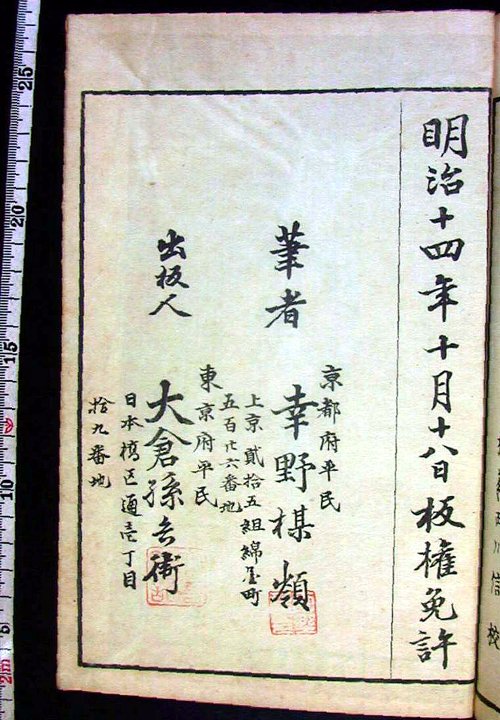 明治十四年十月十八日板權免許
京都府平民
筆者 幸野楳嶺
上京貳拾五組綿屋町
五百廿六番地
東京府平民
出板人 大倉孫兵衛
日本橋区通壱丁目
拾九番地
25
20
15
10
5
2m